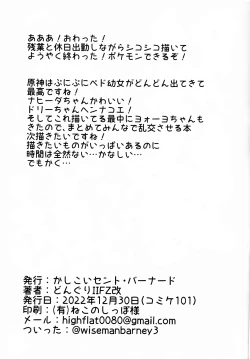 あああ！おわった！
残業と休日出勤しながらシコシコ描いて
ようやく終わった！ポケモンできるぞ！
原神はぷにぷにペド幼女がどんどん出てきて
最高ですね！
ナヒーダちゃんかわいい！
ドリーちゃんヘンナコエ！
そしてこれ描いてる最中にヨォーヨちゃんも
きたので、まとめてみんなで乱交させる本
次描きたいですね！
描きたいものがいっぱいあるのに
時間は全然ない…かなしい…
でもかく…
発行：かしこいセント・バーナード
著者：どんぐりIIFZ改
発行日：2022年12月30日(コミケ101)
印刷：(有)ねこのしっぽ様
メール：highflat0080@gmail.com
ついった：@wisemanbarney3